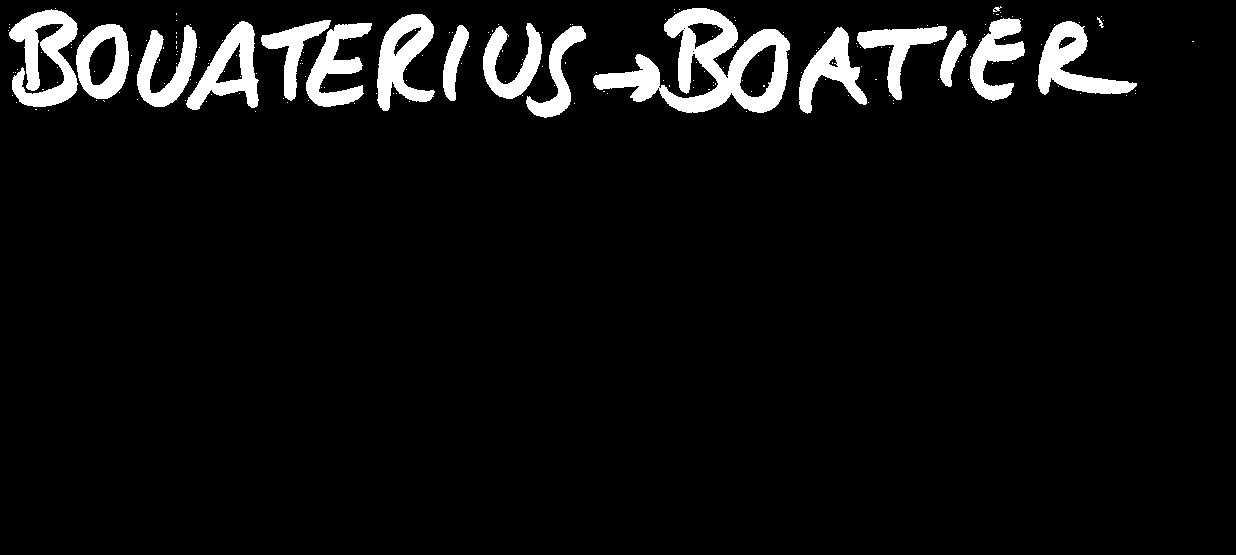 BOUATERIUS → BOATIER